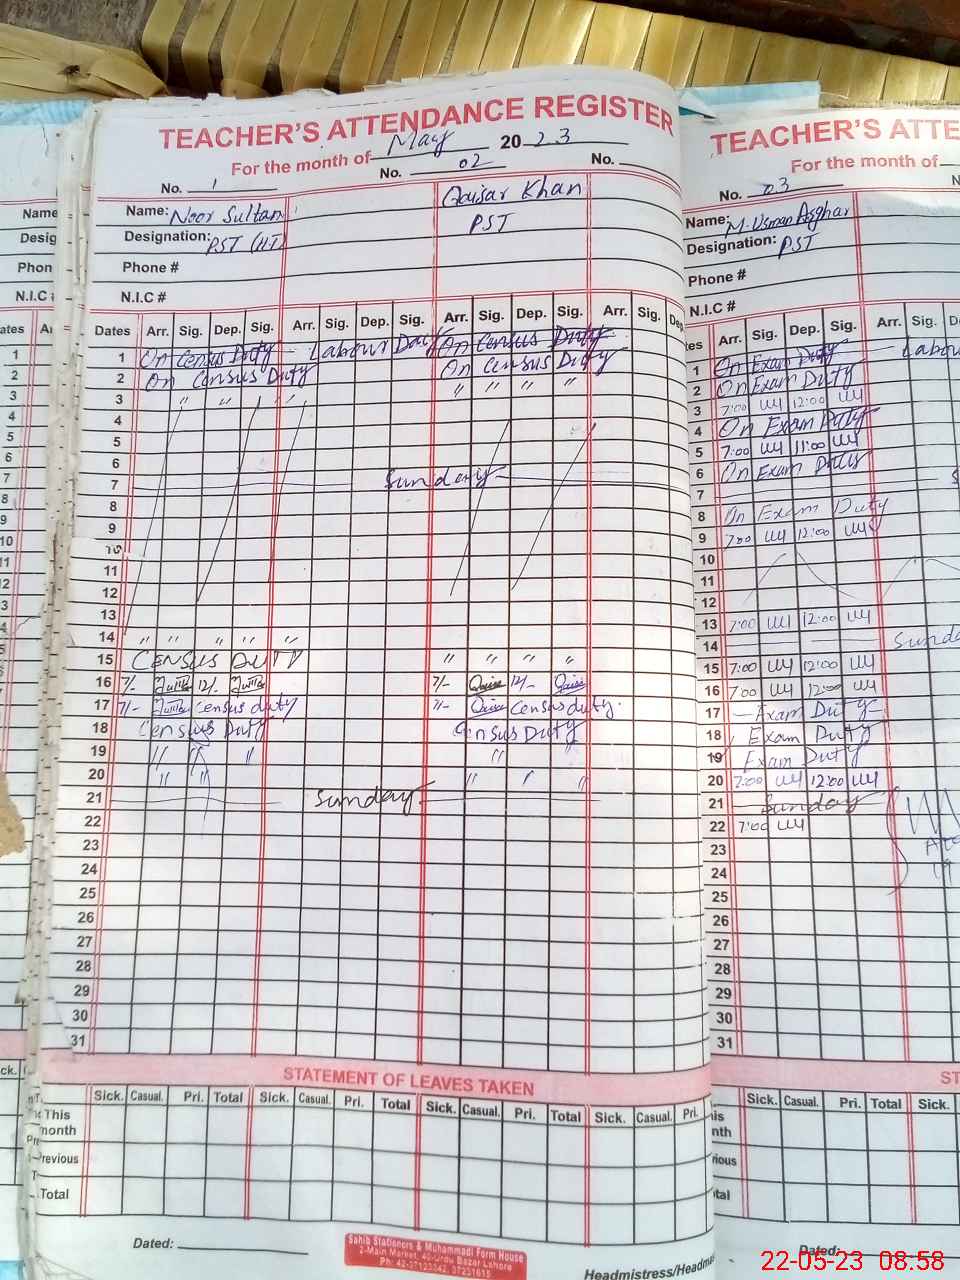 TEACHER'S ATTENDANCE REGISTER
For the month of May 2023
No. 1 No. 02 No.
Name: Noor Sultan Qaisar Khan
Designation: PST (HT) PST
Phone #
N.I.C #
Dates Arr. Sig. Dep. Sig. Arr. Sig. Dep. Sig. Arr. Sig. Dep. Sig. Arr. Sig. Dep
1 On Census Duty Labour Day On Census Duty
2 On Census Duty On Census Duty
3 " " " " " " " "
4
5
6
7 Sunday
8
9
10
11
12
13
14 " " " " " "
15 CENSUS DUTY " " " "
16 7/- 12/- 7/- Qaisr 12/- Qaisr
17 7/- Census duty 7/- Qaisr Census duty.
18 Census Duty Census Duty
19 " " " "
20 " " " " "
21 Sunday
22
23
24
25
26
27
28
29
30
31
STATEMENT OF LEAVES TAKEN
Sick. Casual. Pri. Total Sick. Casual. Pri. Total Sick. Casual. Pri. Total Sick. Casual. Pri.
This month
Previous
Total
Dated:
Sahib Stationers & Muhammadi Form House
2-Main Market, 40-Urdu Bazar Lahore
Ph: 42-37123342, 37231615
Headmistress/Headma
TEACHER'S ATTE
For the month of
No. 03
Name: M. Usman Asghar
Designation: PST
Phone #
N.I.C #
tes Arr. Sig. Dep. Sig. Arr. Sig. D
1 On Exam Duty Labou
2 On Exam Duty
3 7:00 12:00
4 On Exam Duty
5 7:00 11:00
6 On Exam Duty
7 S
8 On Exam Duty
9 7:00 12:00
10
11
12
13 7:00 12:00
14 Sunda
15 7:00 12:00
16 7:00 12:00
17 Exam Duty
18 Exam Duty
19 Exam Duty
20 7:00 12:00
21 Sunday
22 7:00
23
24
25
26
27
28
29
30
31
ST
Sick. Casual. Pri. Total Sick.
his
nth
ious
tal
Dated:
Name
Desig
Phon
N.I.C #
ates A
1
2
3
4
5
6
7
8
9
10
11
12
22-05-23 08:58